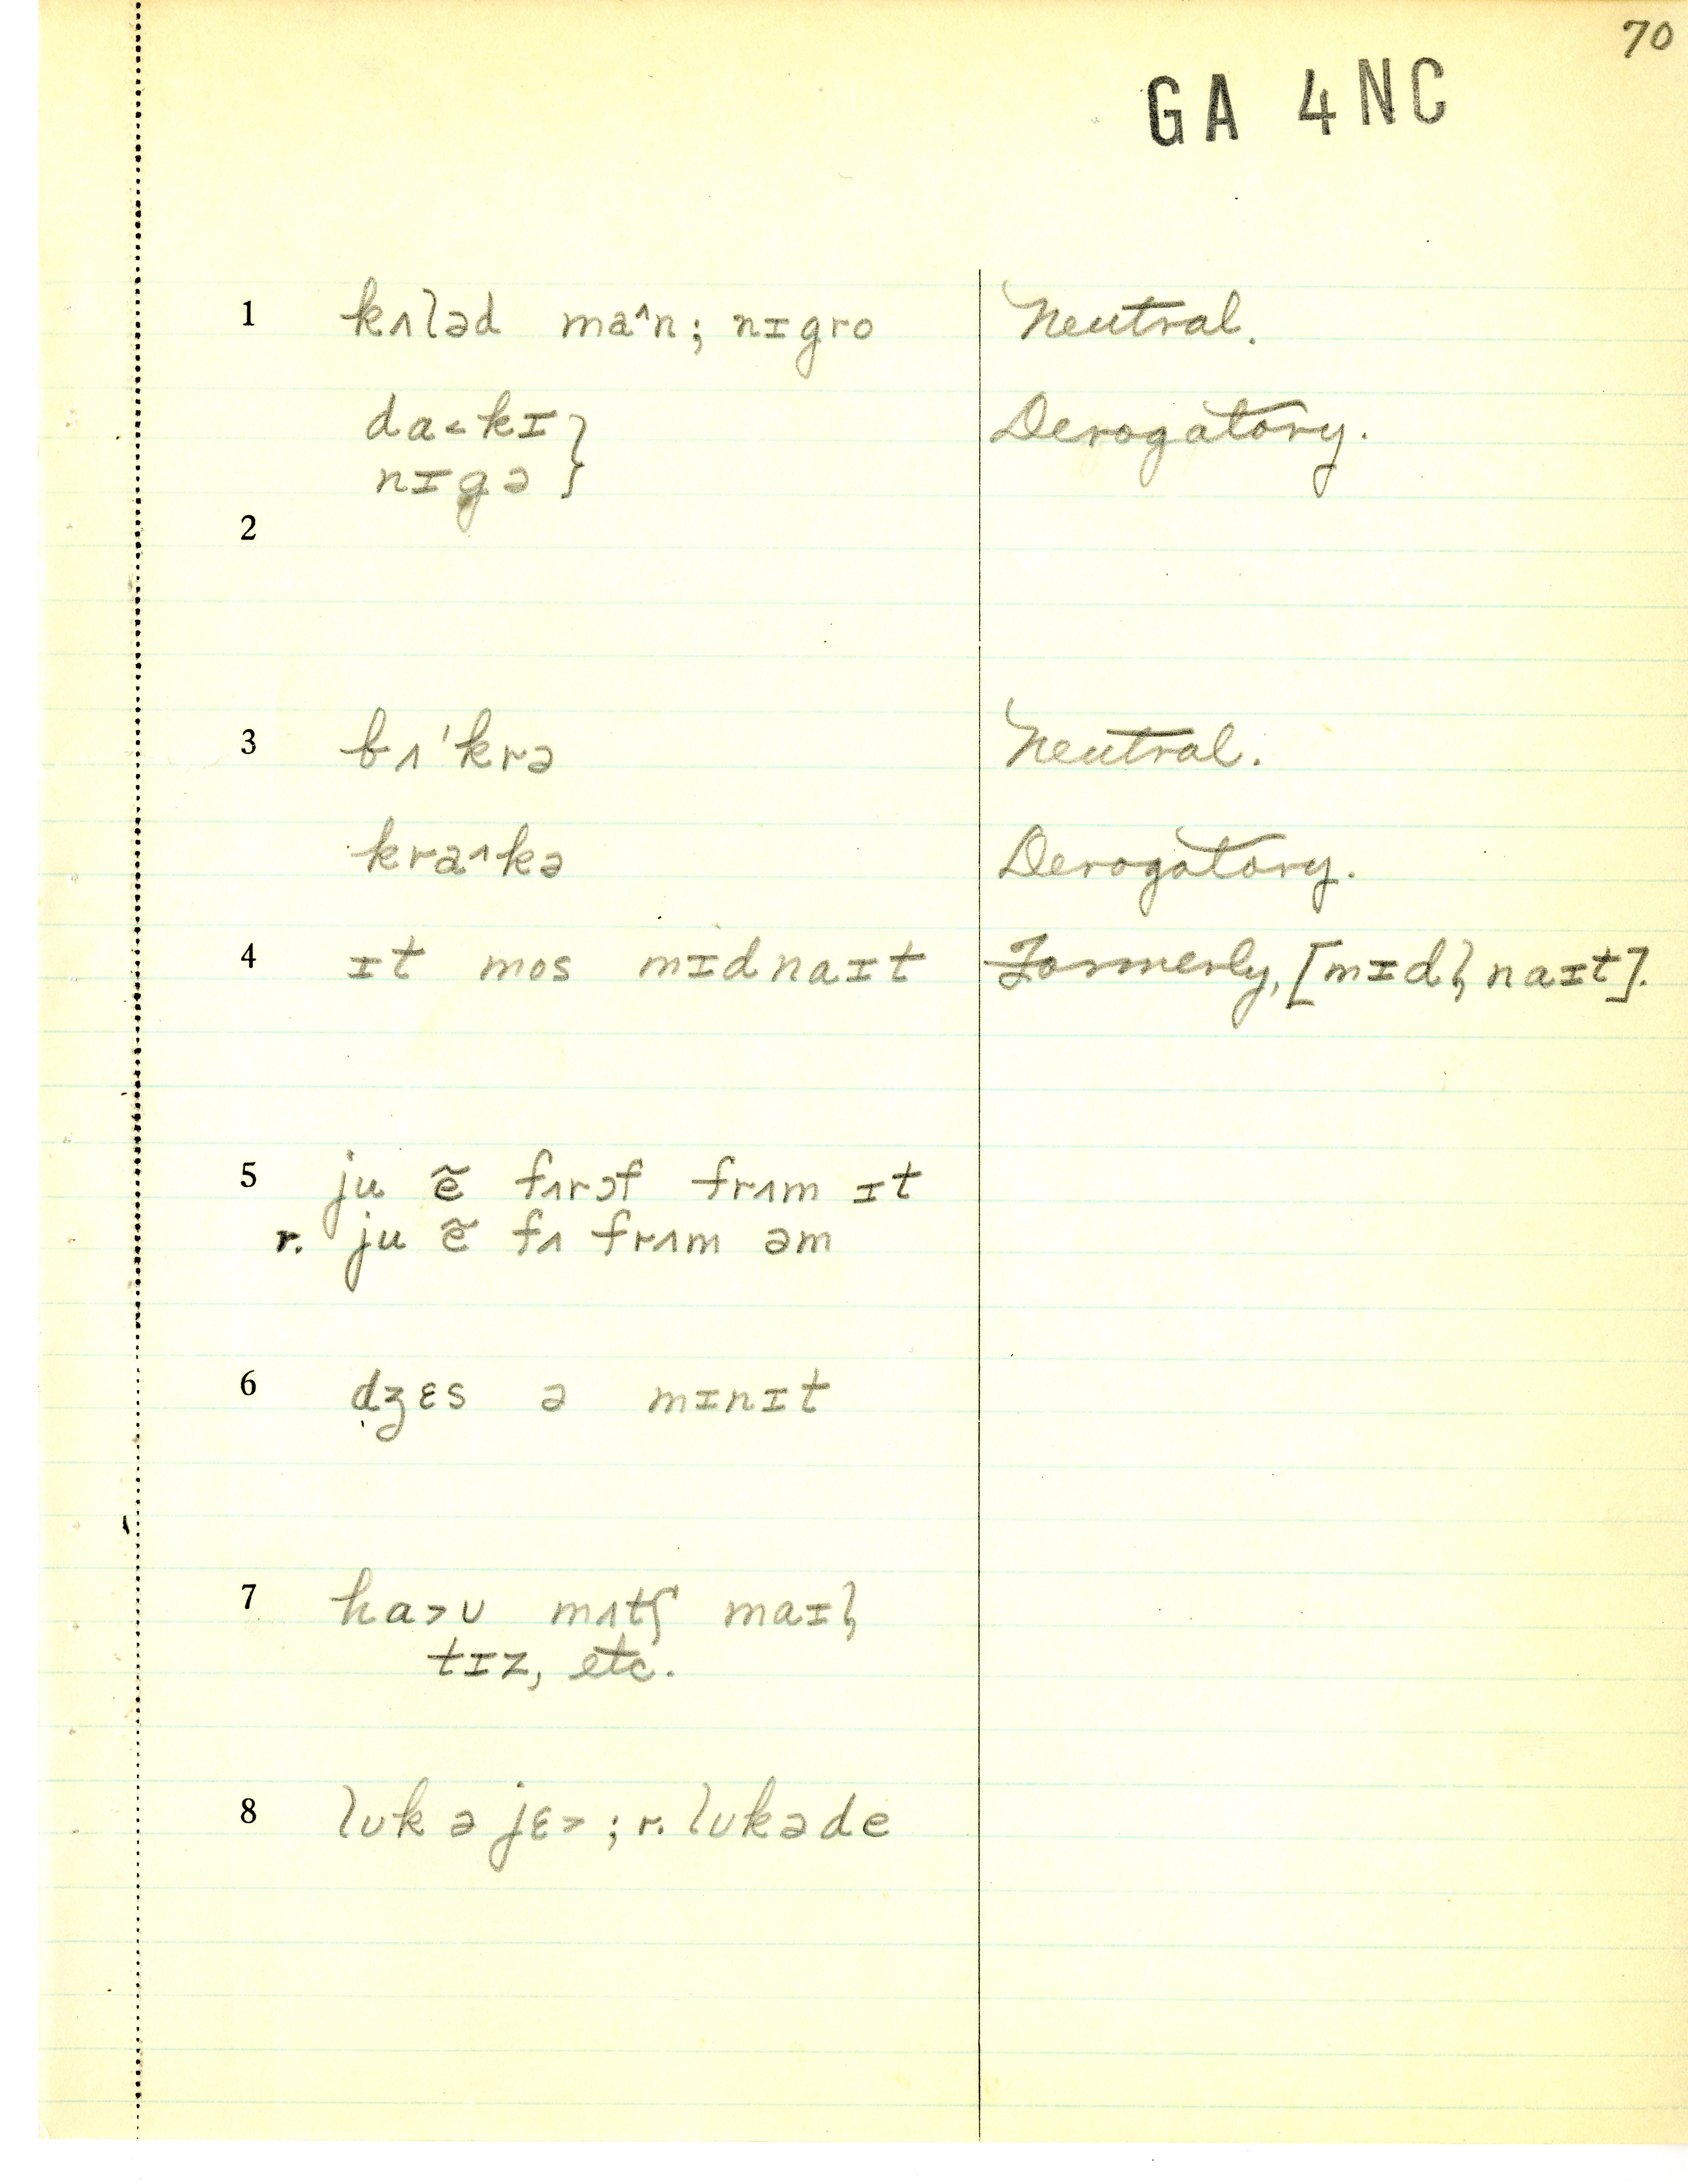 70
GA 4NC
1 kʌləd ma^n; nɪgro Neutral.
da<kɪ } Derogatory.
nɪgə }
2
3 bʌ'krə Neutral.
kra^kə Derogatory.
4 ɪt mos mɪdnaɪt Formerly, [mɪdl̩ naɪt].
5 ju ẽ fʌrɔf frʌm ɪt
r. ju ẽ fʌ frʌm əm
6 dʒɛs ə mɪnɪt
7 ha>ʊ mʌtʃ maɪl̩
tɪz, etc.
8 lʊk ə jɛ> ; r. lʊkəde